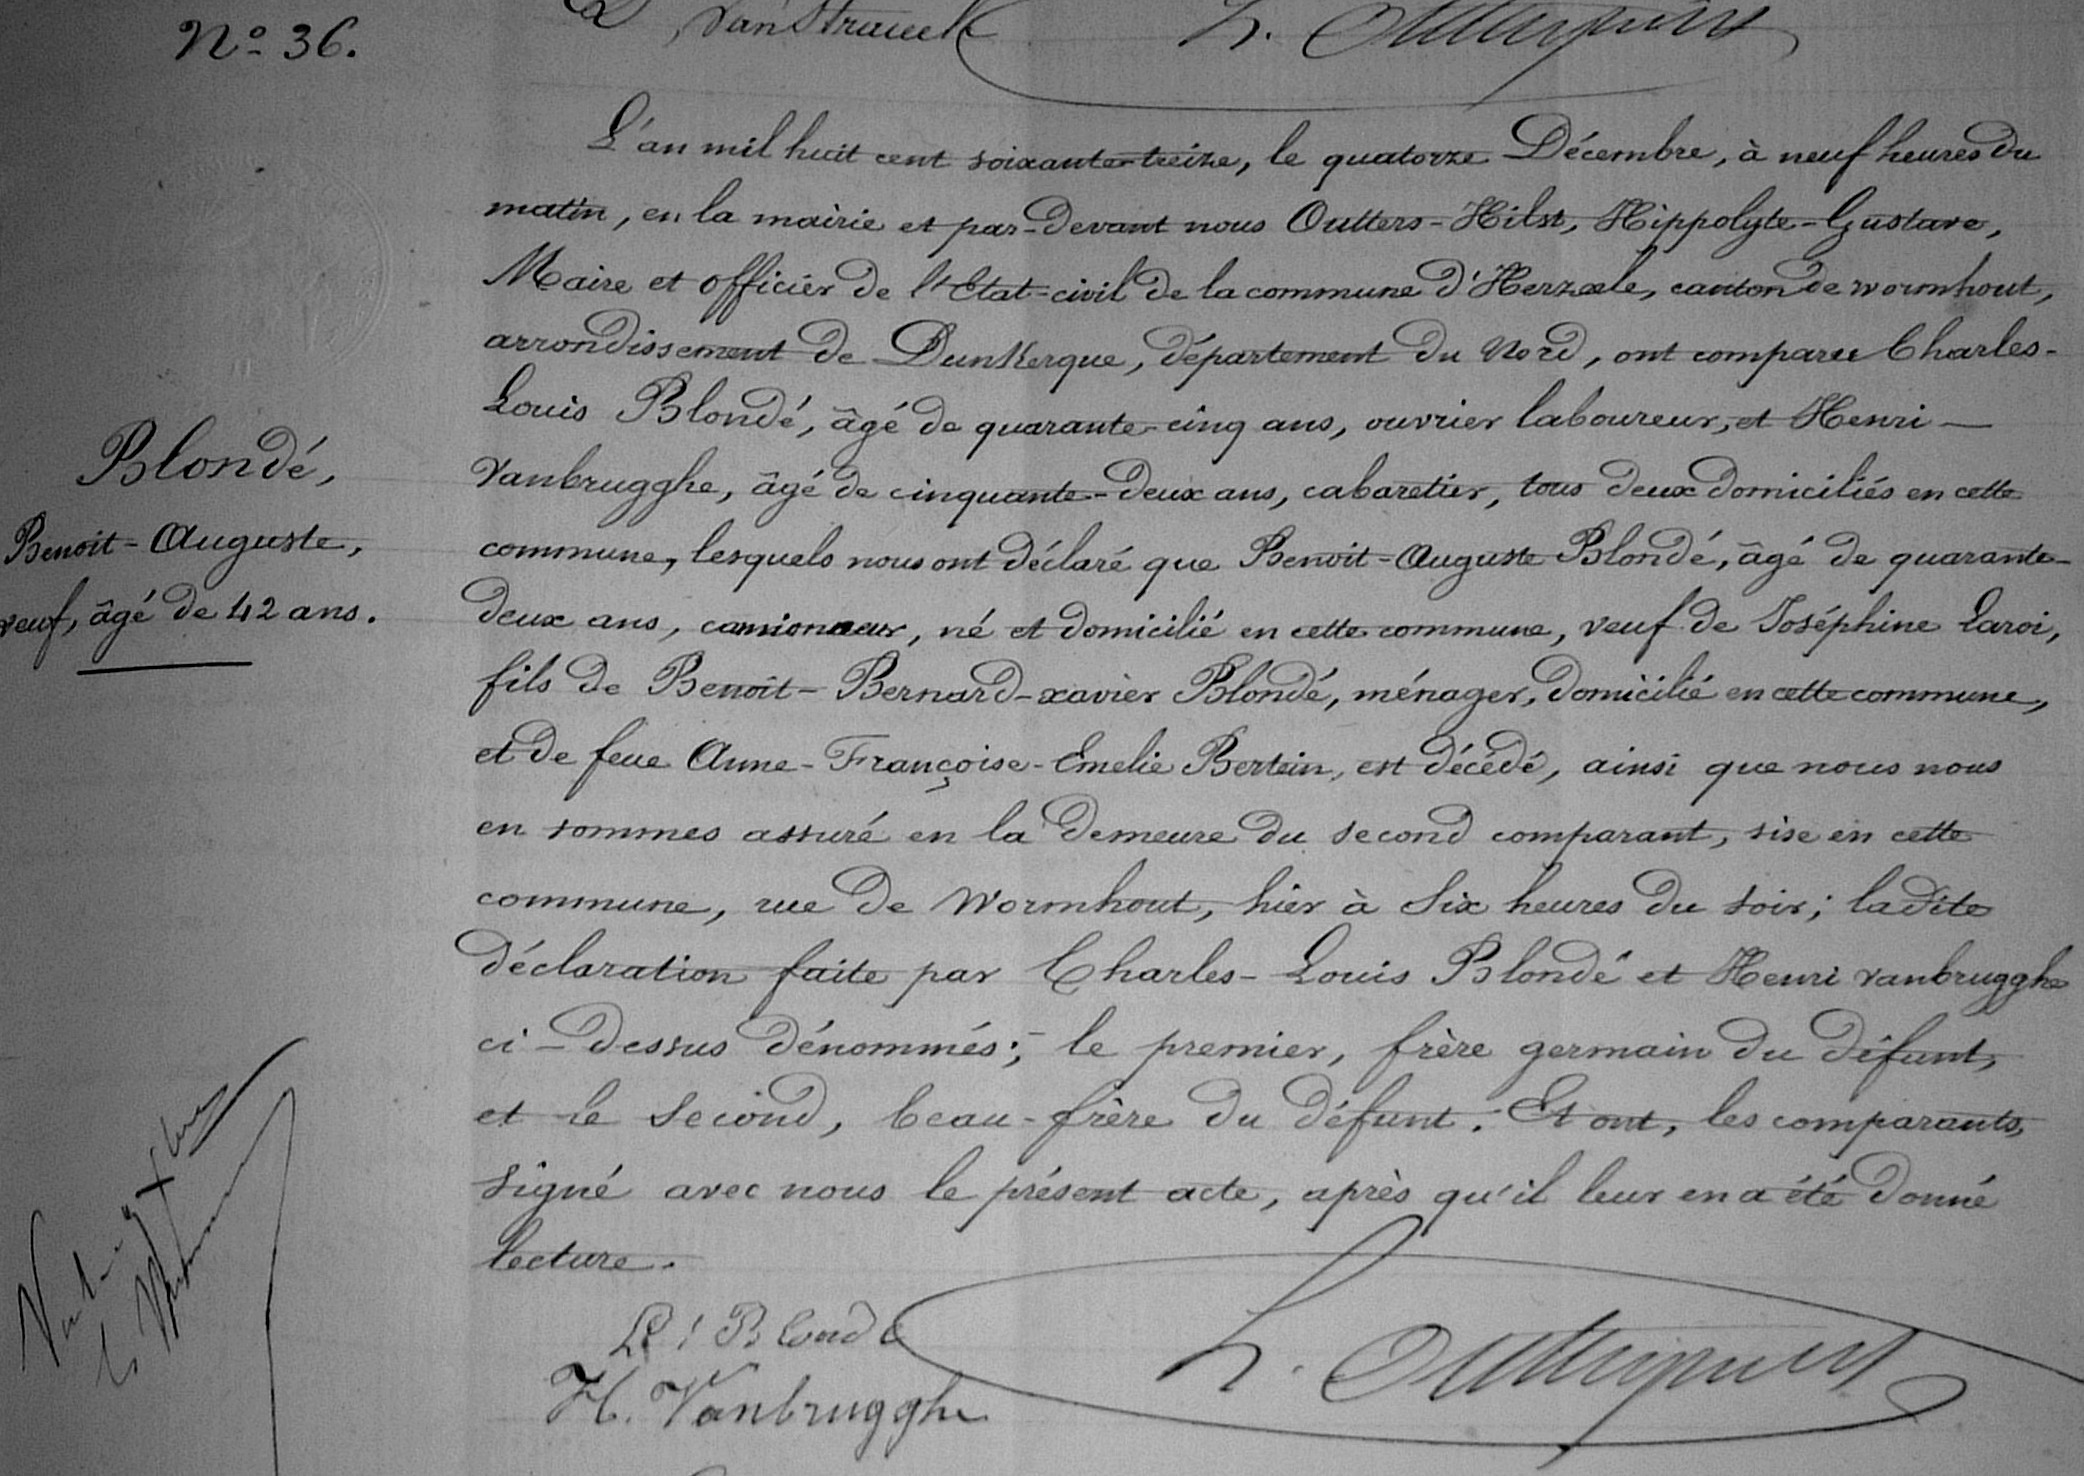 Vanstraceele
Nº 36.
L'an mil huit cent soixante-treize, le quatorze Décembre, à neuf heures du
matin, en la mairie et par-devant nous Outters-Hilst, Hippolyte-Gustave,
Maire et officier de l'Etat-civil de la commune d'Herzeele, canton de wormhout,
arrondissement de Dunkerque, département du Nord, ont comparu Charles-
Louis Blondé, âgé de quarante-cinq ans, ouvrier laboureur, et Henri —
Blondé,
Vanbrugghe, âgé de cinquante-deux ans, cabaretier, tous deux domiciliés en cette
Benoit-Auguste,
commune, lesquels nous ont déclaré que Benoit-Auguste Blondé, âgé de quarante-
veuf, âgé de 42 ans.
deux ans, camionneur, né et domicilié en cette commune, veuf de Joséphine Laroi,
fils de Benoit-Bernard-xavier Blondé, ménager, domicilié en cette commune,
et de feue Anne-Françoise-Emelie Bertein, est décédé, ainsi que nous nous
en sommes assuré en la demeure du second comparant, sise en cette
commune, rue de Wormhout, hier à six heures du soir; ladite
déclaration faite par Charles-Louis Blondé et Henri vanbrugghe
ci-dessus dénommés; le premier, frère germain du défunt,
et le second, beau-frère du défunt. Et ont, les comparants,
signé avec nous le présent acte, après qu'il leur en a été donné
lecture.
Blondé
H. Vanbrugghe